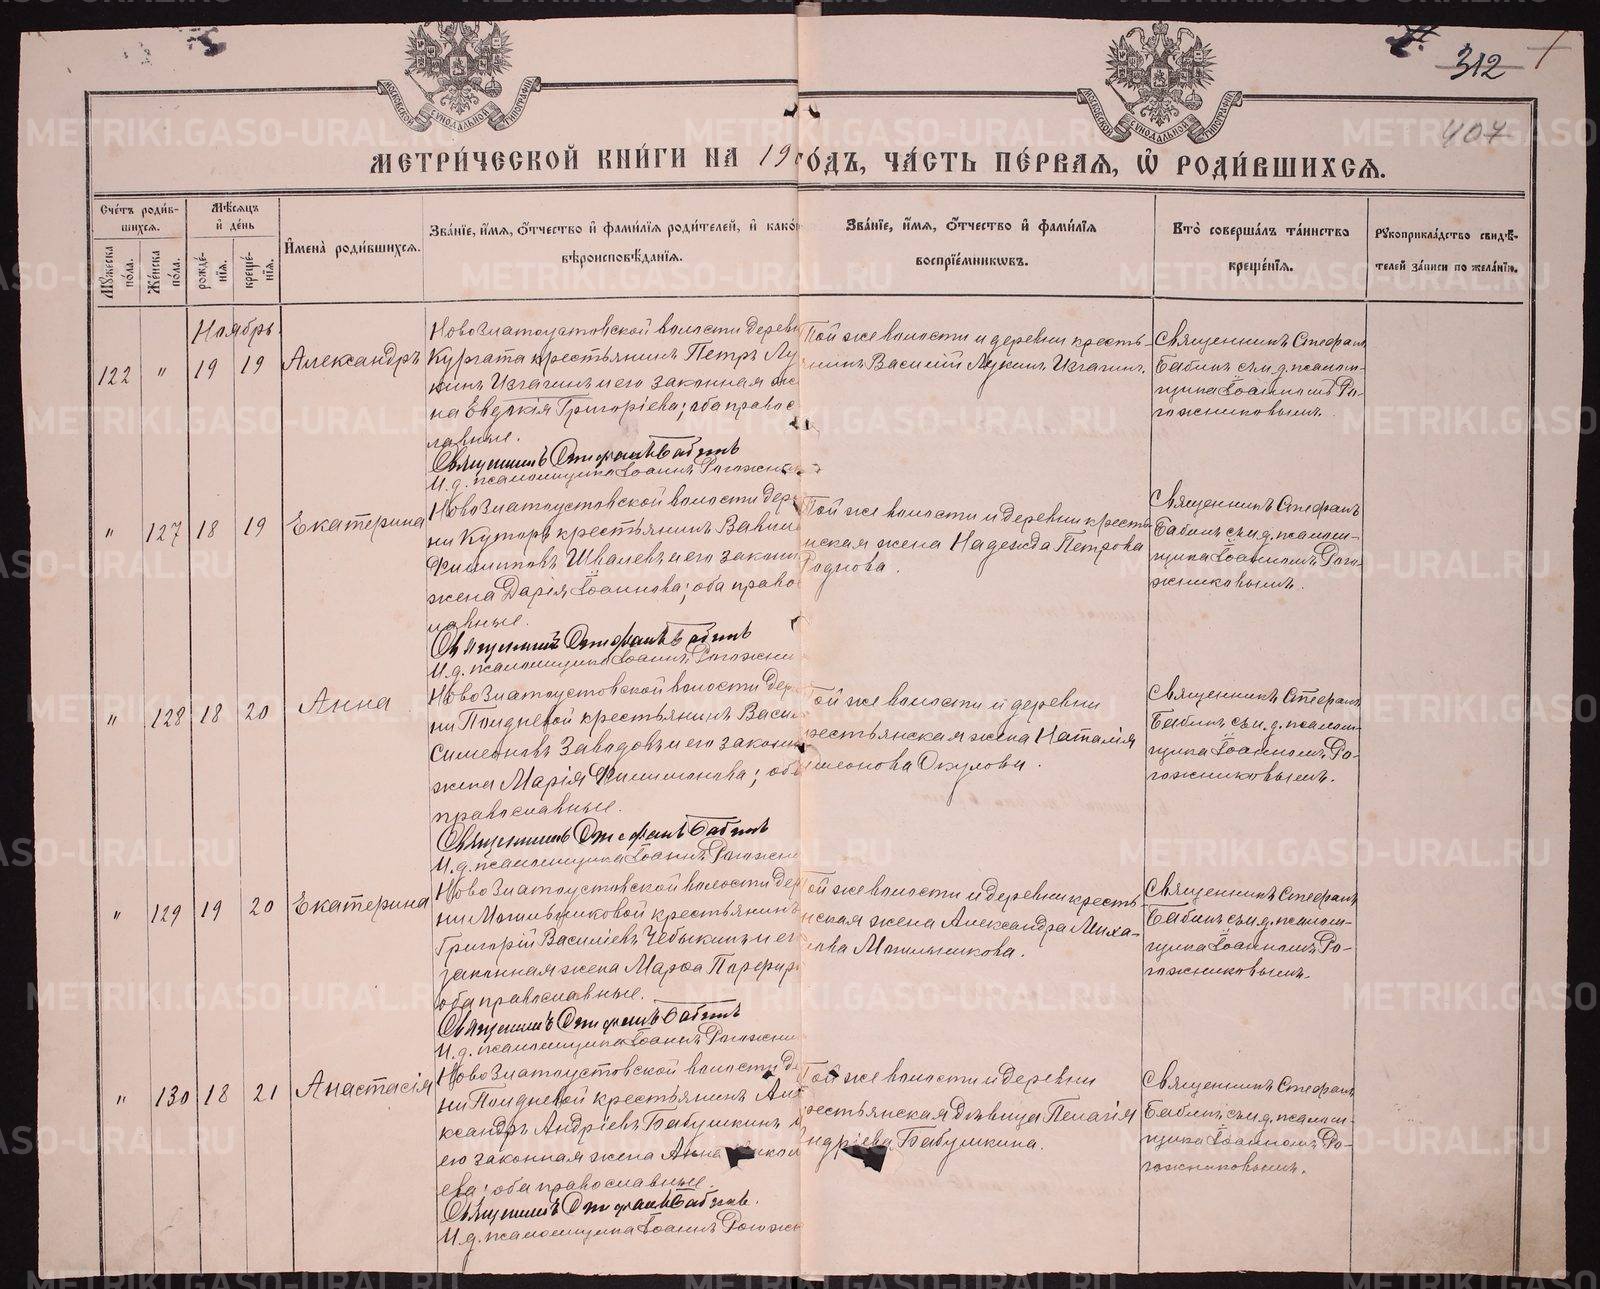 312
407
МЕТРИ́ЧЕСКОЙ КНИ́ГИ НА 19 ГО́ДЪ, ЧА́СТЬ ПЕ́РВАЯ, Ѽ РОДИ́ВШИХСЯ.
Сче́тъ роди́вшихся.
Мꙋ́жеска по́ла.
Же́нска по́ла.
Мѣ́сяцъ и҆ де́нь
рожде́нїя.
креще́нїя.
И҆мена̀ роди́вшихся.
Зва́нїе, и҆́мя, ѻ҆́тчество и҆ фами́лїя роди́телей, и҆ како́
вѣроисповѣ́данїя.
Зва́нїе, и҆́мя, ѻ҆́тчество и҆ фами́лїя
воспрїе́мниковъ.
Кто̀ соверша́лъ та́инство
креще́нїя.
Рꙋкоприкла́дство свидѣ́-
телей за́писи по жела́нїю.
Ноябрь.
122 " 19 19 Александръ
Новозлатоустовской волости дерев
Кургата крестьянинъ Петръ Лу
кинъ Изгагинъ и его законная же
на Евдокія Григоріева; оба правос
лавные.
Священникъ Стефанъ Бабинъ
И.д. псаломщика Іоаннъ Рогожни
Той же волости и деревни кресть-
янинъ Василій Лукинъ Изгагинъ.
Священникъ Стефанъ
Бабинъ съ и.д. псалом-
щика Іоанномъ Ро-
гожниковымъ.
" 127 18 19 Екатерина
Новозлатоустовской волости дер
ни Куторъ крестьянинъ Вавил
Филипповъ Швалевъ и его законн
жена Дарія Іоаннова; оба право
лавные.
Священникъ Стефанъ Бабинъ
И.д. псаломщика Іоаннъ Рогожни
Той же волости и деревни кресть
нская жена Надежда Петрова
Роднова.
Священникъ Стефанъ
Бабинъ съ и.д. псалом-
щика Іоанномъ Рого-
жниковымъ.
" 128 18 20 Анна
Новозлатоустовской волости дер
ни Полдневой крестьянинъ Васи
Симеоновъ Заводовъ и его законн
жена Марія Филимонова; об
православные.
Священникъ Стефанъ Бабинъ
И.д. псаломщика Іоаннъ Рогожни
Той же волости и деревни
рестьянская жена Наталія
имеонова Окулова.
Священникъ Стефанъ
Бабинъ съ и.д. псалом-
щика Іоанномъ Ро-
гожниковымъ.
" 129 19 20 Екатерина
Новозлатоустовской волости дер
ни Могильниковой крестьянинъ
Григорій Василіевъ Чебыкинъ и ег
законная жена Марѳа Порфир
оба православные.
Священникъ Стефанъ Бабинъ
И.д. псаломщика Іоаннъ Рогожни
Той же волости и деревни кресть-
нская жена Александра Миха-
лова Могильникова.
Священникъ Стефанъ
Бабинъ съ и.д. псалом-
щика Іоанномъ Ро-
гожниковымъ.
" 130 18 21 Анастасія
Новозлатоустовской волости де
ни Полдневой крестьянинъ Але
ксандръ Андріевъ Бабушкинъ и
его законная жена Анна икол
ева; оба православные.
Священникъ Стефанъ Бабинъ.
И.д. псаломщика Іоаннъ Рогожн
Той же волости и деревни
рестьянская дѣвица Пелагія
Андріева Бабушкина.
Священникъ Стефанъ
Бабинъ съ и.д. псалом-
щика Іоанномъ Ро-
гожниковымъ.